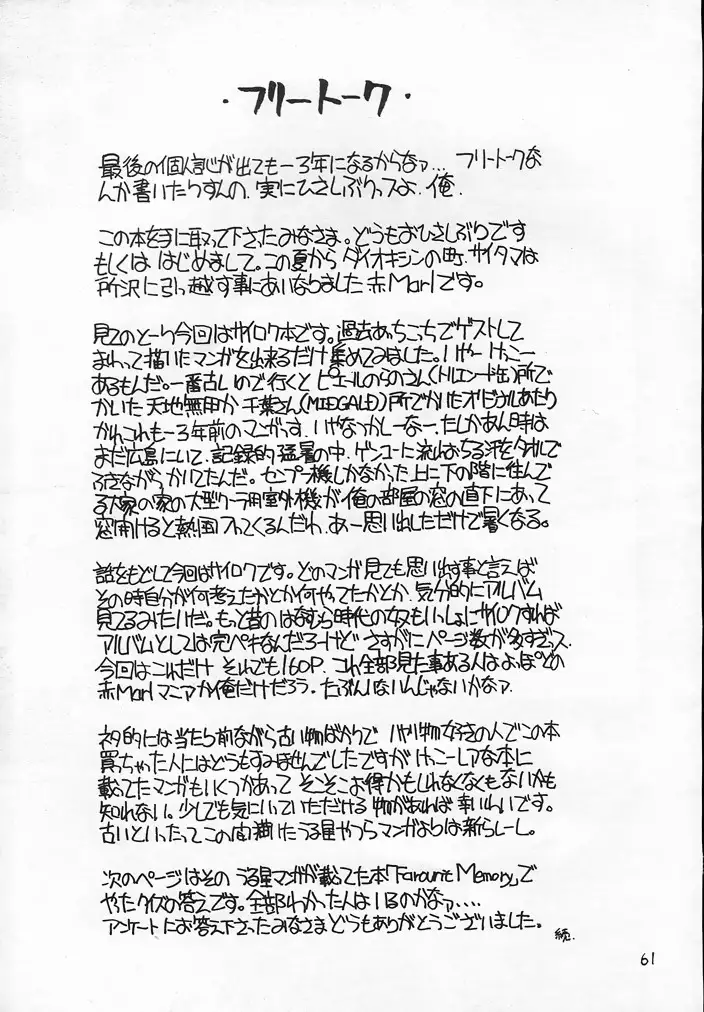 ・フリートーク・
最後の個人誌が出ても一3年になるからなァ… フリートークな
んか書いたりすんの、実にひさしぶりっスよ、俺、
この本を手に取って下さったみなさま。どうもおひさしぶりです
もしくは はじめまして。この夏から ダイオキシンの町、サイタマは
所沢に引っ越す事にあいなりました赤Marlです。
見てのとーり今回はサイロク本です。過去あっちこっちでゲストして
まわって描いたマンガを出来るだけ集めてみました。いやーけっこー
あるもんだ。一番古いので行くと ピエールのらのさん(トルエンド缶)所で
かいた 天地無用か 千葉さん(MIDGALD)所でかいたオリジナルあたり
かな、これも一3年前のマンガっす、いやなつかしーなー、たしかあん時は
まだ広島にいて、記録的猛暑の中、ゲンコーに流れおちる汗をタオルで
ふきながらかいてたんだ。センプー機しかなかった上に下の階に住んで
る大家の家の大型クーラー用室外機が俺の部屋の窓の直下にあって
窓開けると熱風入ってくるんだわ、あー思い出しただけで暑くなる。
話をもどして今回はサイロクです。どのマンガ見ても思い出す事と言えば
その時自分が何考えたかとか何やってたかとか、気分的にアルバム
見てるみたいだ。もっと昔のはなむら時代の奴もいっしょにサイロクすれば
アルバムとしては完ペキなんだろーけど さすがにページ数が多すぎっス、
今回はこれだけ それでも160P、これ全部見た事ある人はよっぽどの
赤Marlマニアか俺だけだろう、たぶんいないんじゃないかなァ、
ネタ的には当たり前ながら古い物ばかりで ハヤリ物好きの人でこの本
買っちゃった人にはどうもすみませんでしたですが けっこーレアな本に
載ってたマンガもいくつかあって そこそこお得かもしれなくなくもないかも
知れない。少しでも気にいっていただける物があれば 幸いです。
古いといったって この間描いたうる星やつらマンガよりは新らしーし。
次のページはその うる星マンガが載ってた本「Favourite Memory」で
やったクイズの答えです。全部わかった人はいるのかなァ....
アンケートにお答え下さったみなさまどうもありがとうございました。
続.
61